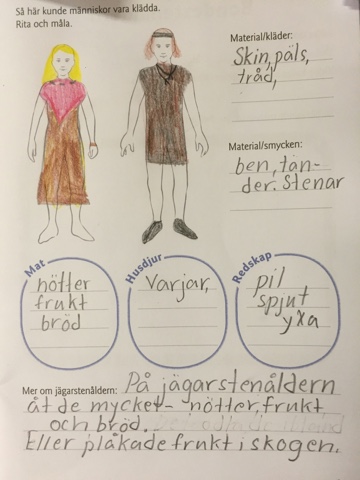 Så här kunde människor vara klädda.
Rita och måla.
Material/kläder:
Skin, päls,
tråd,
Material/smycken:
ben, tän-
der. Stenar
Mat
nötter
frukt
bröd
Husdjur
Varjar,
Redskap
pil
spjut
yxa
Mer om jägarstenåldern: På jägarstenåldern
åt de mycket- nötter, frukt
och bröd.
Eller plåkade frukt i skogen.